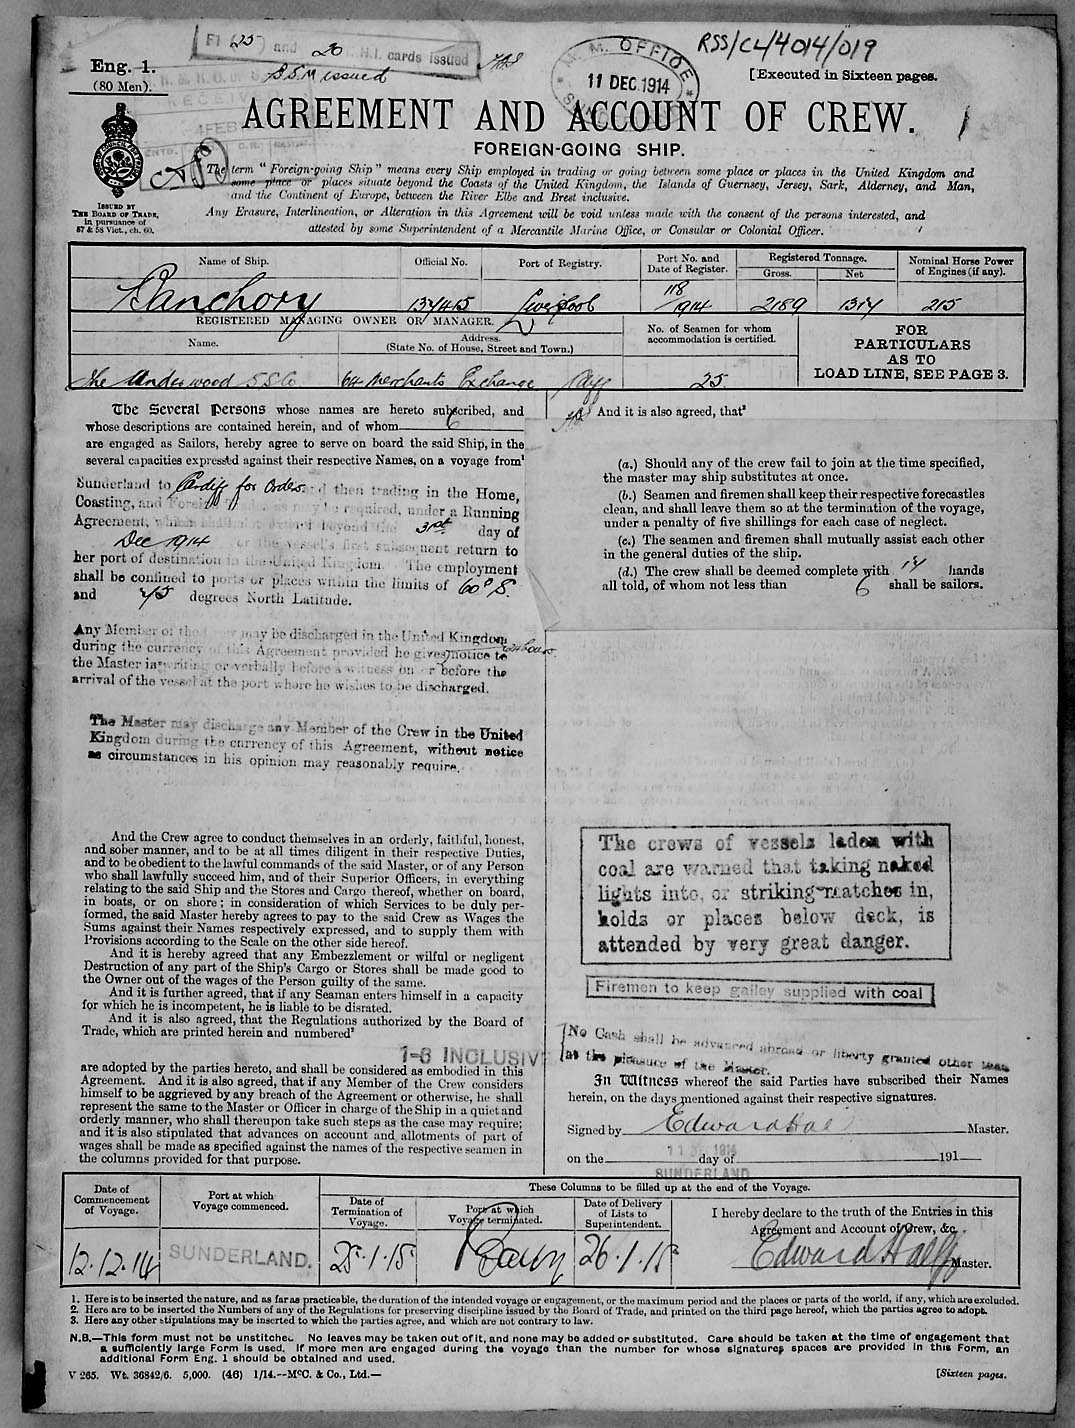 FI (25) and 26 H.I. cards issued
RSS/CL/4014/019
BSM issued
M. M. OFFICE
11 DEC. 1914
Eng. 1.
(80 Men).
[Executed in Sixteen pages.
RECEIVED
4 FEB
AGREEMENT AND ACCOUNT OF CREW.
FOREIGN-GOING SHIP.
The term "Foreign-going Ship" means every Ship employed in trading or going between some place or places in the United Kingdom and
some place or places situate beyond the Coasts of the United Kingdom, the Islands of Guernsey, Jersey, Sark, Alderney, and Man,
and the Continent of Europe, between the River Elbe and Brest inclusive.
Any Erasure, Interlineation, or Alteration in this Agreement will be void unless made with the consent of the persons interested, and
attested by some Superintendent of a Mercantile Marine Office, or Consular or Colonial Officer.
ISSUED BY
THE BOARD OF TRADE,
in pursuance of
57 & 58 Vict., ch. 60.
Name of Ship. Official No. Port of Registry. Port No. and Date of Register. Registered Tonnage. Gross. Net Nominal Horse Power of Engines (if any).
Banchory 137415 Liverpool 118/1914 2189 1317 215
REGISTERED MANAGING OWNER OR MANAGER.
Name. Address. (State No. of House, Street and Town.)
No. of Seamen for whom accommodation is certified.
FOR PARTICULARS AS TO LOAD LINE, SEE PAGE 3.
The Underwood S.S. Co 64 Merchants Exchange Cdiff 25
The Several Persons whose names are hereto subscribed, and
whose descriptions are contained herein, and of whom 6
are engaged as Sailors, hereby agree to serve on board the said Ship, in the
several capacities expressed against their respective Names, on a voyage from¹
Sunderland to Cardiff for Orders and then trading in the Home,
Coasting, and Foreign Trade, as may be required, under a Running
Agreement, which shall not extend beyond the 31st day of
Dec 1914 or the vessel's first subsequent return to
her port of destination in the United Kingdom. The employment
shall be confined to ports or places within the limits of 60° S.
and 75 degrees North Latitude.
Any Member of the Crew may be discharged in the United Kingdom
during the currency of this Agreement provided he gives 24 hours notice to
the Master in writing or verbally before a witness on or before the
arrival of the vessel at the port where he wishes to be discharged.
The Master may discharge any Member of the Crew in the United
Kingdom during the currency of this Agreement, without notice
as circumstances in his opinion may reasonably require.
And the Crew agree to conduct themselves in an orderly, faithful, honest,
and sober manner, and to be at all times diligent in their respective Duties,
and to be obedient to the lawful commands of the said Master, or of any Person
who shall lawfully succeed him, and of their Superior Officers, in everything
relating to the said Ship and the Stores and Cargo thereof, whether on board,
in boats, or on shore; in consideration of which Services to be duly per-
formed, the said Master hereby agrees to pay to the said Crew as Wages the
Sums against their Names respectively expressed, and to supply them with
Provisions according to the Scale on the other side hereof.
And it is hereby agreed that any Embezzlement or wilful or negligent
Destruction of any part of the Ship's Cargo or Stores shall be made good to
the Owner out of the wages of the Person guilty of the same.
And it is further agreed, that if any Seaman enters himself in a capacity
for which he is incompetent, he is liable to be disrated.
And it is also agreed, that the Regulations authorized by the Board of
Trade, which are printed herein and numbered²
1-6 INCLUSIVE
are adopted by the parties hereto, and shall be considered as embodied in this
Agreement. And it is also agreed, that if any Member of the Crew considers
himself to be aggrieved by any breach of the Agreement or otherwise, he shall
represent the same to the Master or Officer in charge of the Ship in a quiet and
orderly manner, who shall thereupon take such steps as the case may require;
and it is also stipulated that advances on account and allotments of part of
wages shall be made as specified against the names of the respective seamen in
the columns provided for that purpose.
And it is also agreed, that³
(a.) Should any of the crew fail to join at the time specified,
the master may ship substitutes at once.
(b.) Seamen and firemen shall keep their respective forecastles
clean, and shall leave them so at the termination of the voyage,
under a penalty of five shillings for each case of neglect.
(c.) The seamen and firemen shall mutually assist each other
in the general duties of the ship.
(d.) The crew shall be deemed complete with 17 hands
all told, of whom not less than 6 shall be sailors.
The crews of vessels laden with
coal are warned that taking naked
lights into, or striking matches in,
holds or places below deck, is
attended by very great danger.
Firemen to keep galley supplied with coal
No Cash shall be advanced abroad or liberty granted other than
at the pleasure of the Master.
In Witness whereof the said Parties have subscribed their Names
herein, on the days mentioned against their respective signatures.
Signed by Edward Hall Master.
on the 11 DEC 1914 day of 191
SUNDERLAND
Date of Commencement of Voyage. Port at which Voyage commenced. These Columns to be filled up at the end of the Voyage.
Date of Termination of Voyage. Port at which Voyage terminated. Date of Delivery of Lists to Superintendent.
I hereby declare to the truth of the Entries in this
Agreement and Account of Crew, &c.
12.12.14 SUNDERLAND. 25.1.15 Barry 26.1.15 Edward Hall Master.
1. Here is to be inserted the nature, and as far as practicable, the duration of the intended voyage or engagement, or the maximum period and the places or parts of the world, if any, which are excluded.
2. Here are to be inserted the Numbers of any of the Regulations for preserving discipline issued by the Board of Trade, and printed on the third page hereof, which the parties agree to adopt.
3. Here any other stipulations may be inserted to which the parties agree, and which are not contrary to law.
N.B.—This form must not be unstitched. No leaves may be taken out of it, and none may be added or substituted. Care should be taken at the time of engagement that
a sufficiently large Form is used. If more men are engaged during the voyage than the number for whose signatures spaces are provided in this Form, an
additional Form Eng. 1 should be obtained and used.
V 265. Wt. 36842/6. 5,000. (46) 1/14.—McC. & Co., Ltd.—
[Sixteen pages.